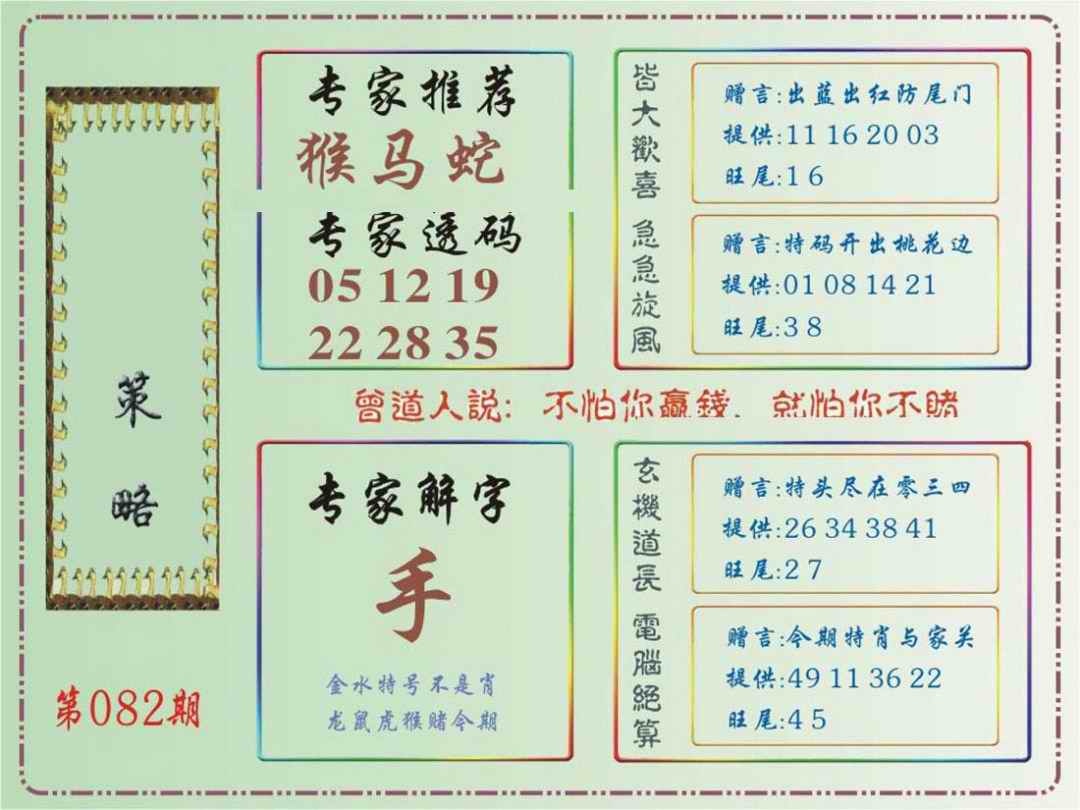 策
略
第082期
专家推荐
猴马蛇
专家透码
05 12 19
22 28 35
皆大歡喜
赠言:出蓝出红防尾门
提供:11 16 20 03
旺尾:1 6
急急旋風
赠言:特码开出桃花边
提供:01 08 14 21
旺尾:3 8
曾道人説: 不怕你贏錢. 就怕你不賭
专家解字
手
金水特号不是肖
龙鼠虎猴赌今期
玄機道長
赠言:特头尽在零三四
提供:26 34 38 41
旺尾:2 7
電腦絕算
赠言:今期特肖与家关
提供:49 11 36 22
旺尾:4 5